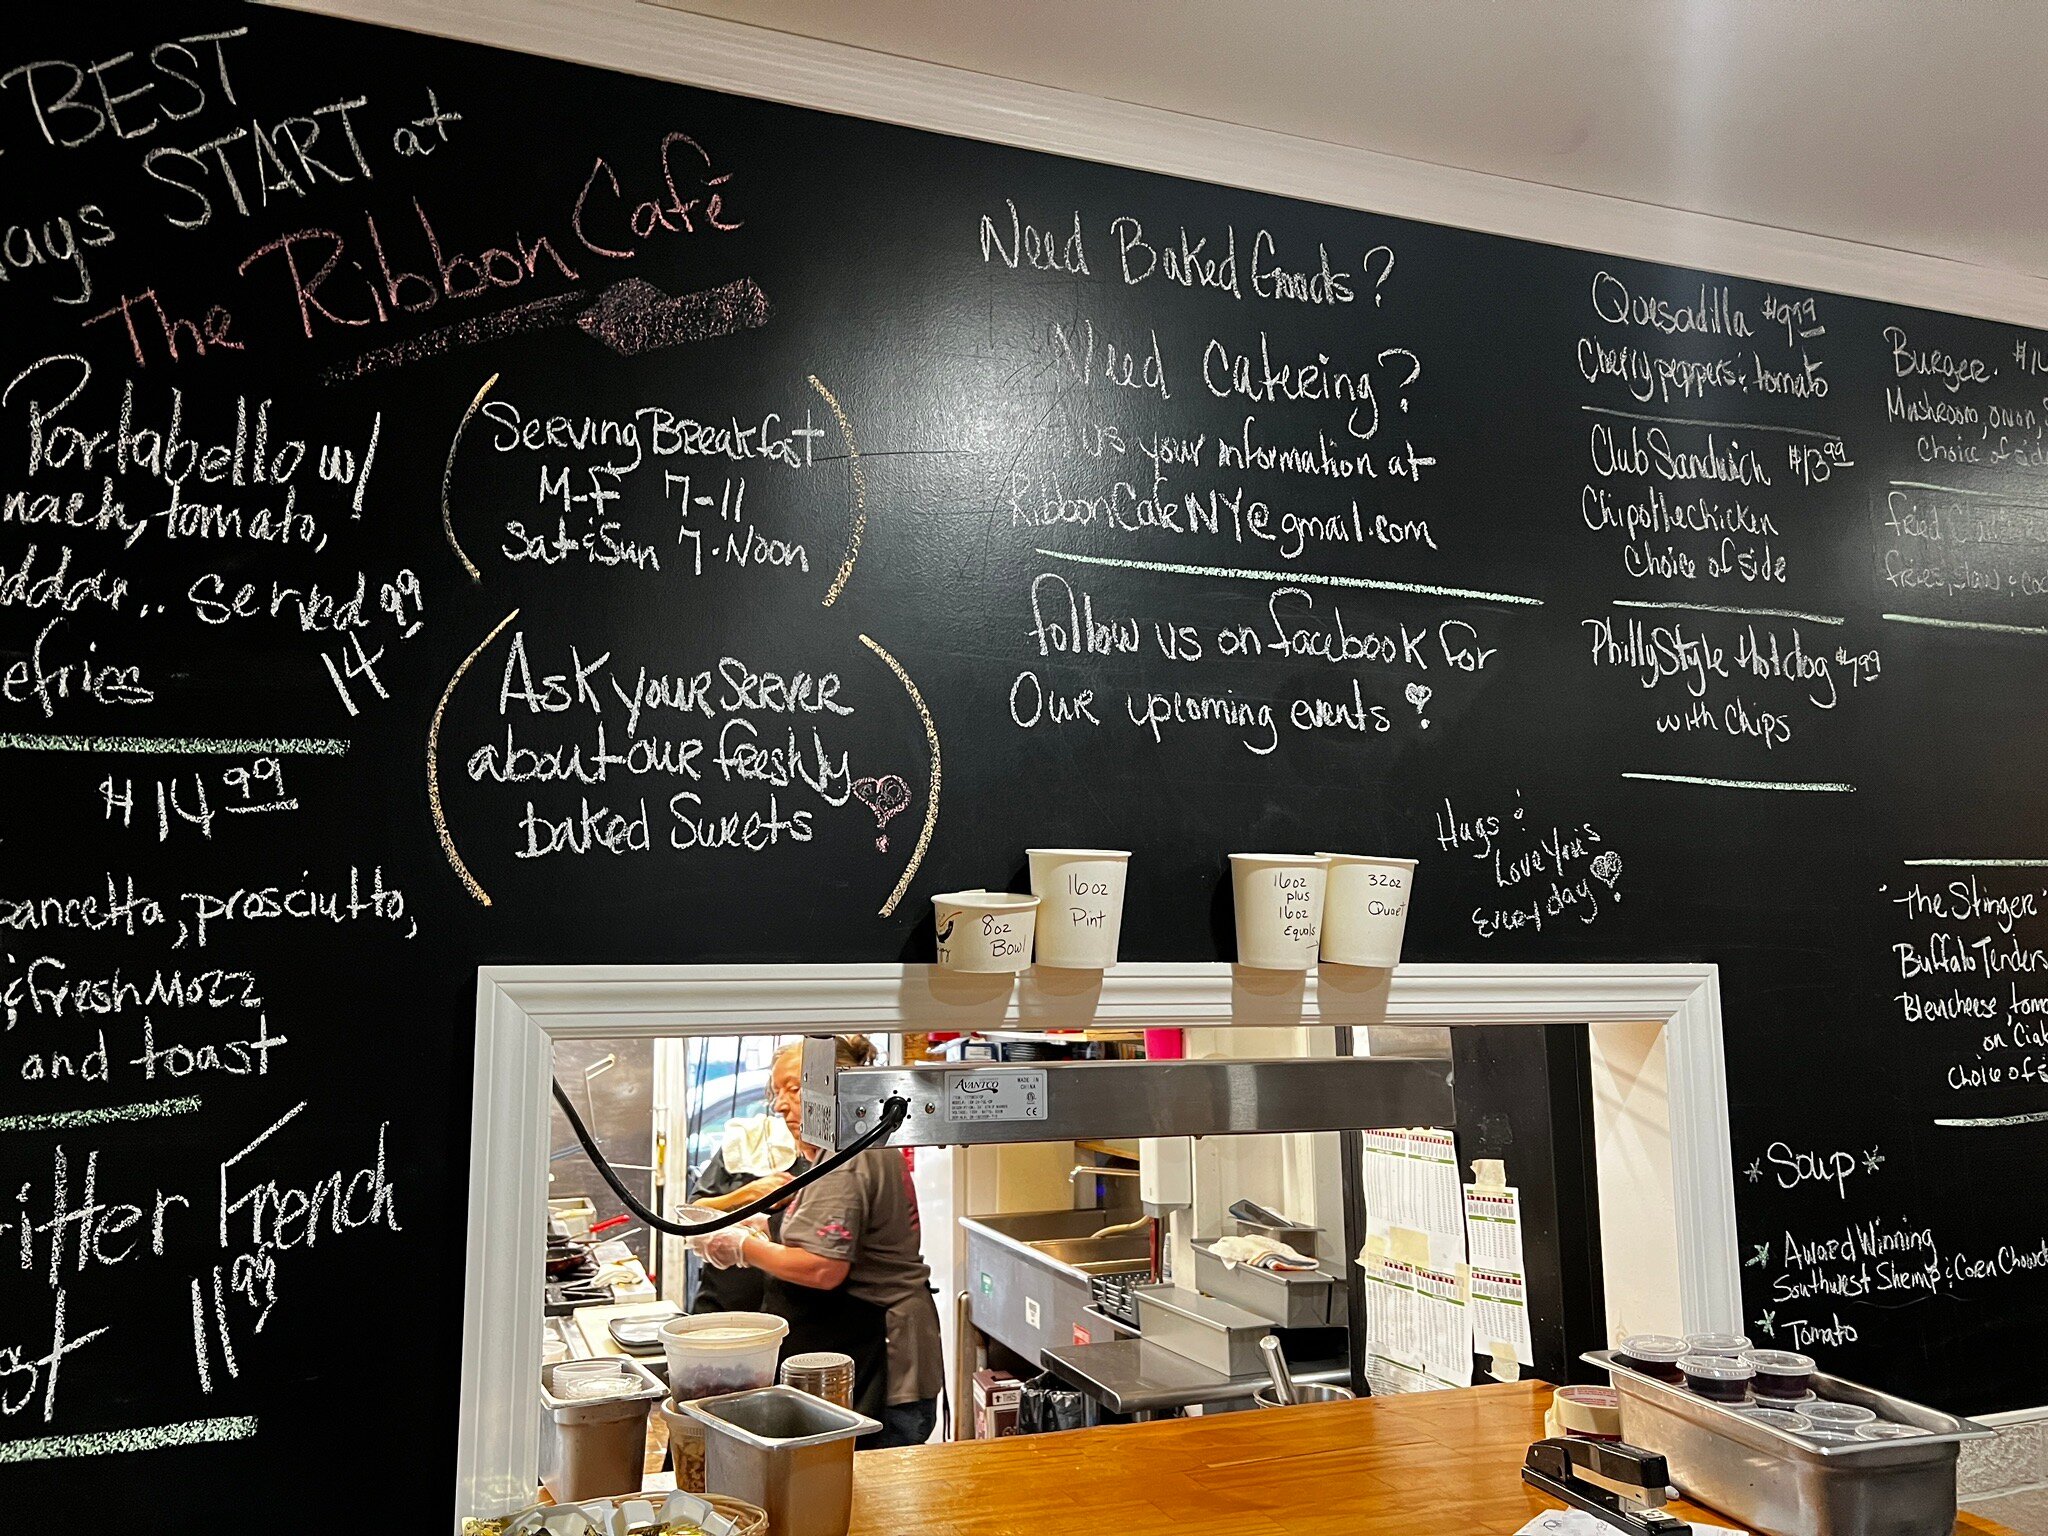 BEST
START at
The Ribbon Café
Portabello w/
tomato,
served
14 99
$14 99
pancetta, prosciutto,
Fresh Mozz
and toast
French
11 99
Serving Breakfast
M-F 7-11
Sat & Sun 7-Noon
Ask your server
about our freshly
baked Sweets
Need Baked Goods?
Need Catering?
us your information at
RibbonCafeNY@gmail.com
follow us on facebook for
Our upcoming events
Quesadilla $9.99
Cherry peppers & tomato
Club Sandwich $13.99
Chipotle chicken
Choice of side
Philly Style Hotdog $7.99
with Chips
Hugs &
Love You's
Everyday
Burger
Mushroom, onion,
Choice of
fried
fries, slaw &
"The Stinger"
Buffalo Tenders
Bleucheese,
on
choice of
*Soup*
* Award Winning
Southwest Shrimp & Corn
* Tomato
8oz
Bowl
16oz
Pint
16oz
plus
16oz
Equals
32oz
Quart
AVANTCO
MADE IN
CHINA
CE
THIS